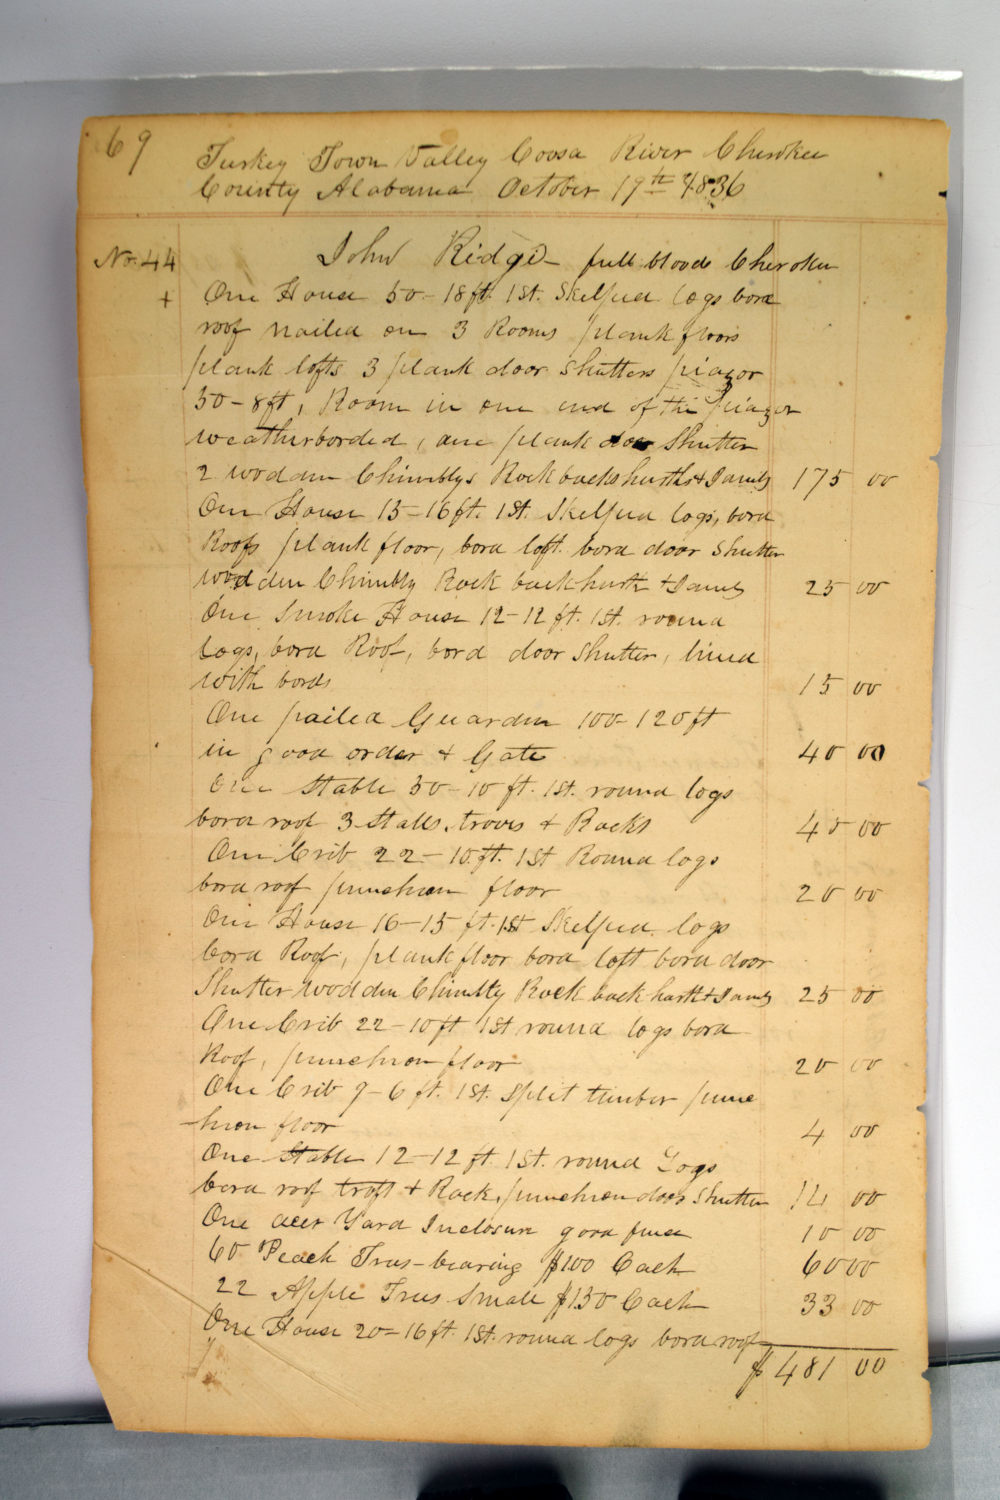 69
Turkey Town Valley Coosa River Cherokee
County Alabama October 19th 1836
No. 44 John Ridge full blood Cherokee
+ One House 50-18 ft. 1 St. Skelped logs bord
roof nailed on 3 Rooms plank floors
plank lofts 3 plank door Shutters piazor
50-8 ft, Room in one end of the piazor
weatherborded, one plank door Shutter
2 wooden Chimblys Rock backs harths & Jambs 175 00
One House 15-16 ft. 1 St. Skelped logs, bord
Roof, plank floor, bord loft. bord door Shutter
wodden Chimbly Rock back harth & Jambs 25 00
One Smoke House 12-12 ft. 1 St. round
Logs, bord Roof, bord door Shutter, lined
with bords 15 00
One pailed Guarden 100-120 ft
in good order & Gate 40 00
One Stable 30-10 ft. 1 St. round logs
bord roof 3 Stalls, troves & Racks 40 00
One Crib 22-10 ft. 1 St Round logs
bord roof punchion floor 20 00
One House 16-15 ft. 1 St Skelped logs
bord Roof, plank floor bord loft bord door
Shutter wodden Chimbly Rock back harth & Jambs 25 00
One Crib 22-10 ft 1 St round logs bord
Roof, punchion floor 20 00
One Crib 9-6 ft. 1 St. Split timber punc
hion floor 4 00
One Stable 12-12 ft 1 St. round Logs
bord roof troft & Rack, punchion door Shutter 14 00
One deer Yard Inclosure good fence 10 00
60 Peach Trees-bearing $100 Each 60 00
22 Apple Trees Small $150 Each 33 00
One House 20-16 ft. 1 St. round logs bord roof
$481 00